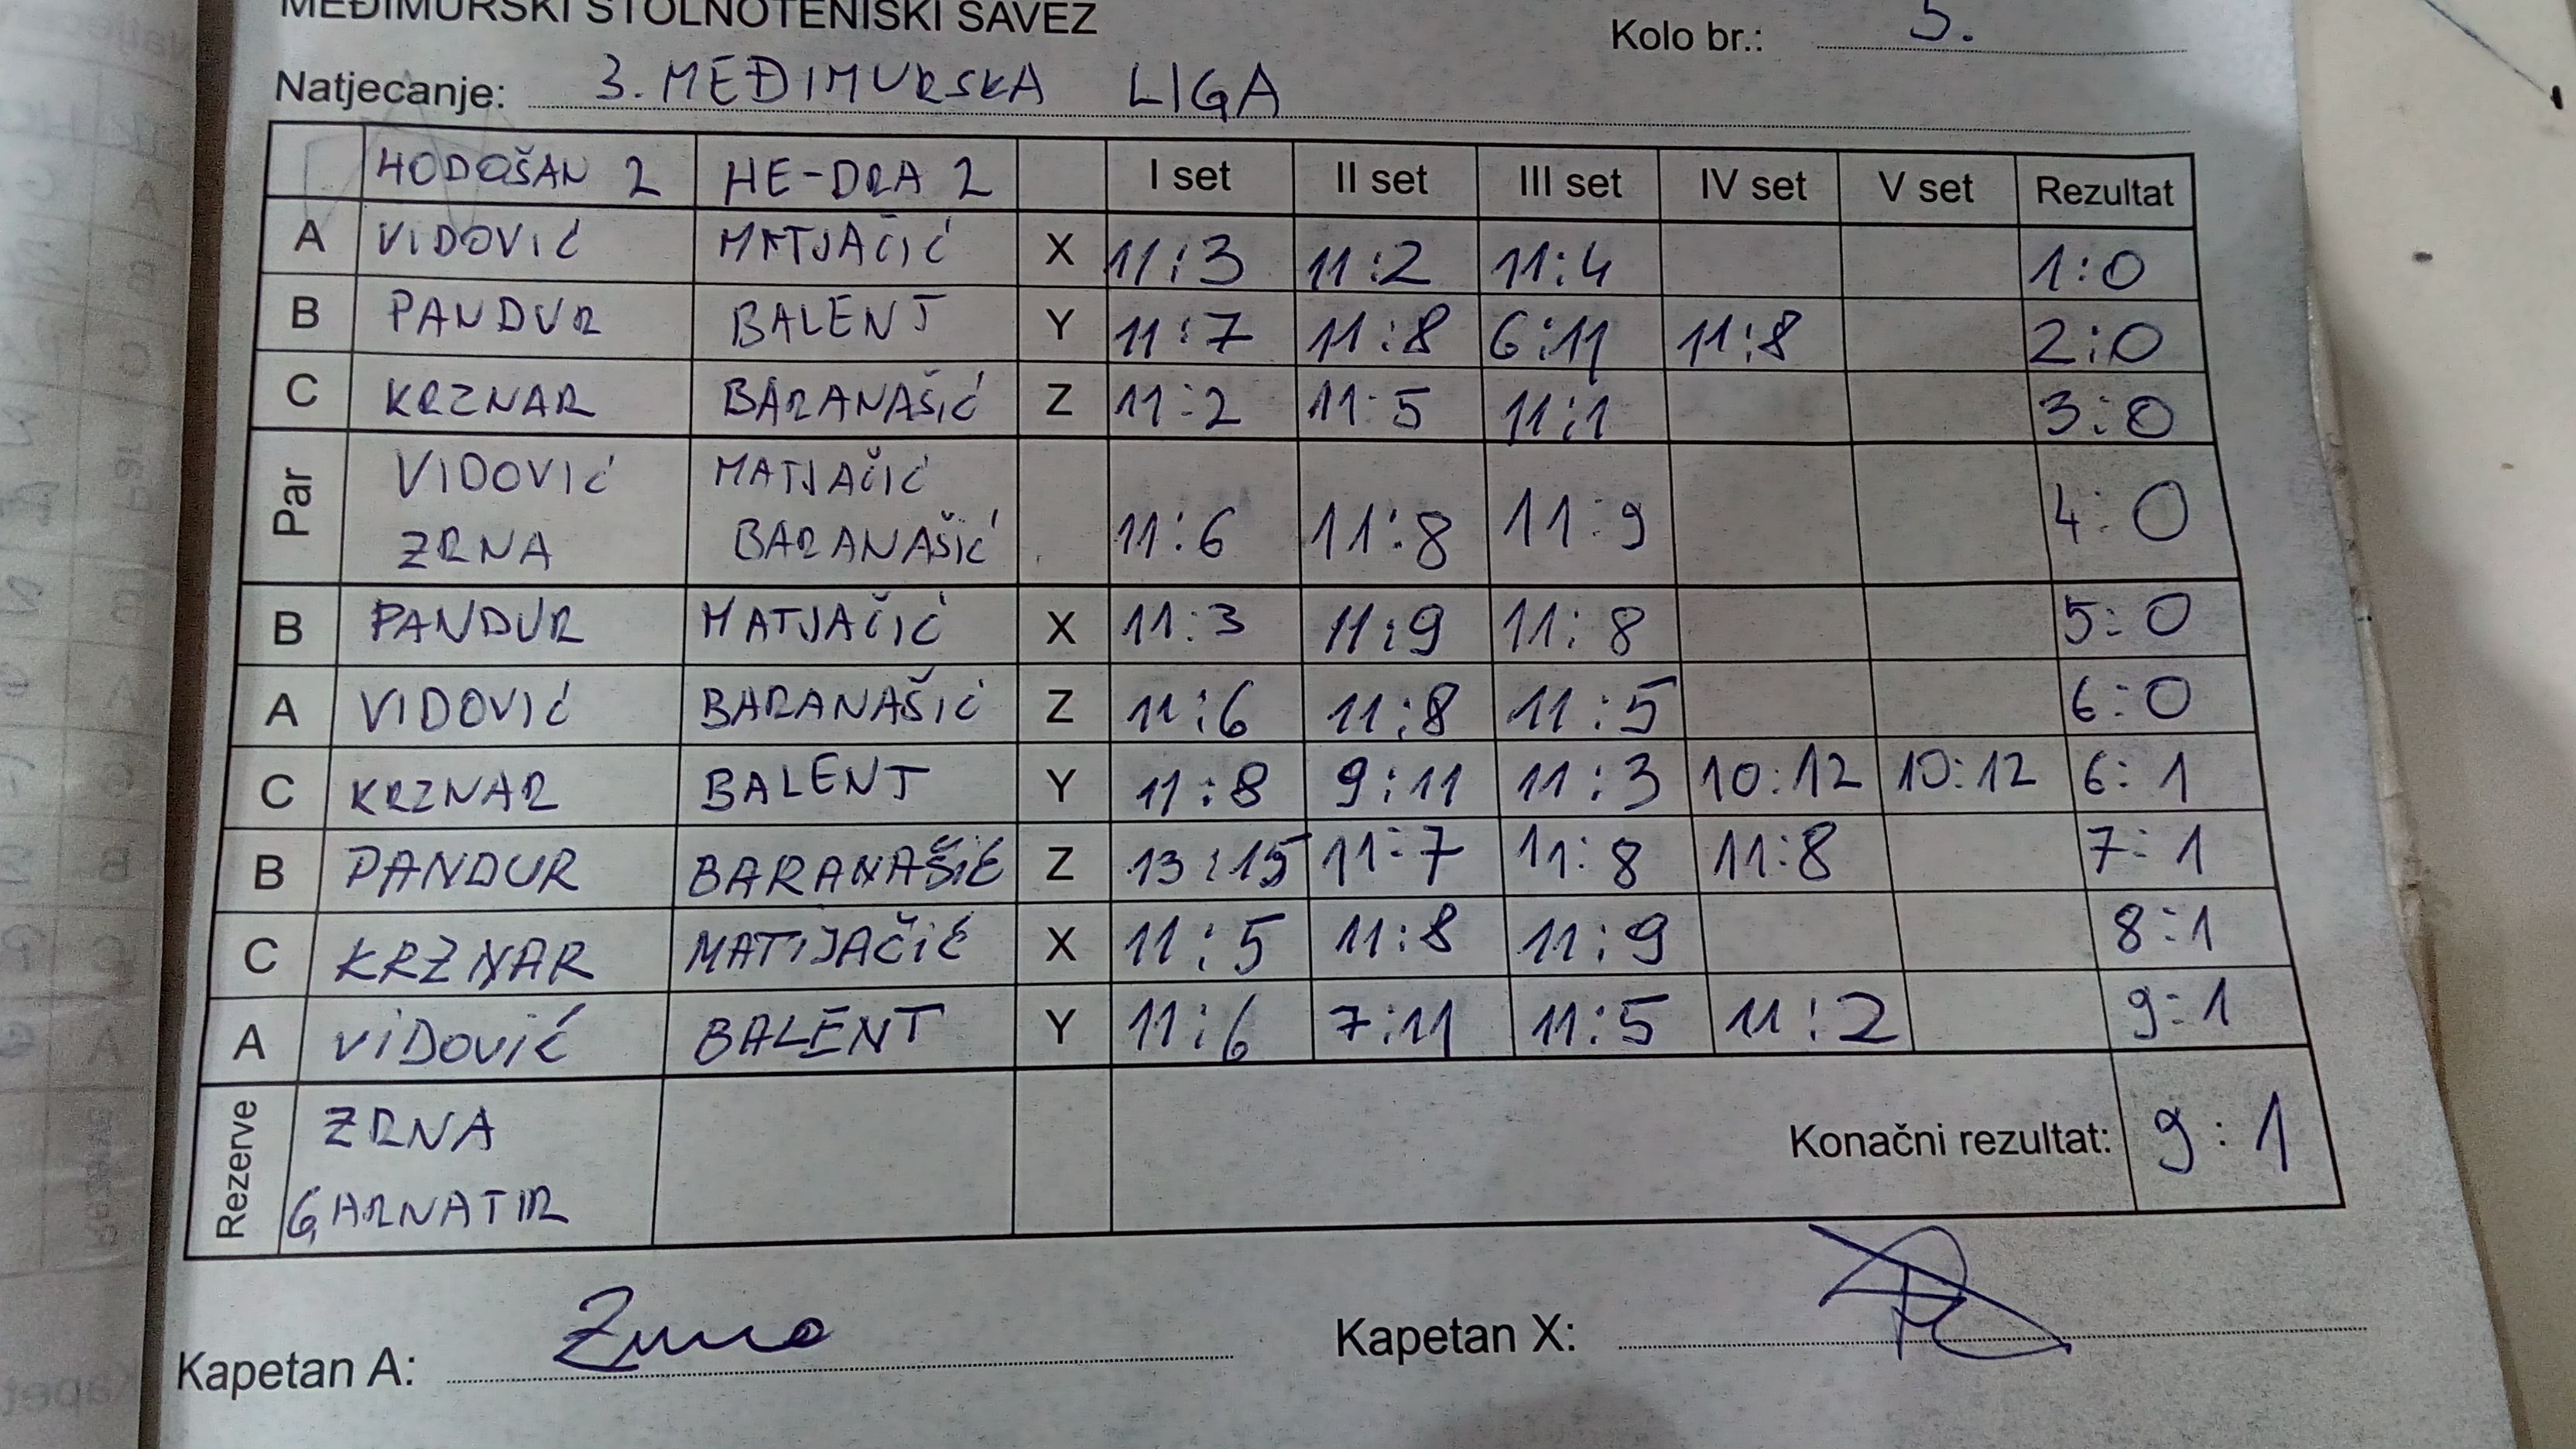 MEĐIMURSKI STOLNOTENISKI SAVEZ
Kolo br.: 5.
Natjecanje: 3. MEĐIMURSKA LIGA
HODOŠAN 2 HE-DRA 2 I set II set III set IV set V set Rezultat
A VIDOVIĆ MATJAČIĆ X 11:3 11:2 11:4 1:0
B PANDUR BALENT Y 11:7 11:8 6:11 11:8 2:0
C KRZNAR BARANAŠIĆ Z 11:2 11:5 11:1 3:0
Par VIDOVIĆ MATJAČIĆ
ZRNA BARANAŠIĆ 11:6 11:8 11:9 4:0
B PANDUR MATJAČIĆ X 11:3 11:9 11:8 5:0
A VIDOVIĆ BARANAŠIĆ Z 11:6 11:8 11:5 6:0
C KRZNAR BALENT Y 11:8 9:11 11:3 10:12 10:12 6:1
B PANDUR BARANAŠIĆ Z 13:15 11:7 11:8 11:8 7:1
C KRZNAR MATIJAČIĆ X 11:5 11:8 11:9 8:1
A VIDOVIĆ BALENT Y 11:6 7:11 11:5 11:2 9:1
Rezerve ZRNA
GARNATIR
Konačni rezultat: 9:1
Kapetan A:
Kapetan X: